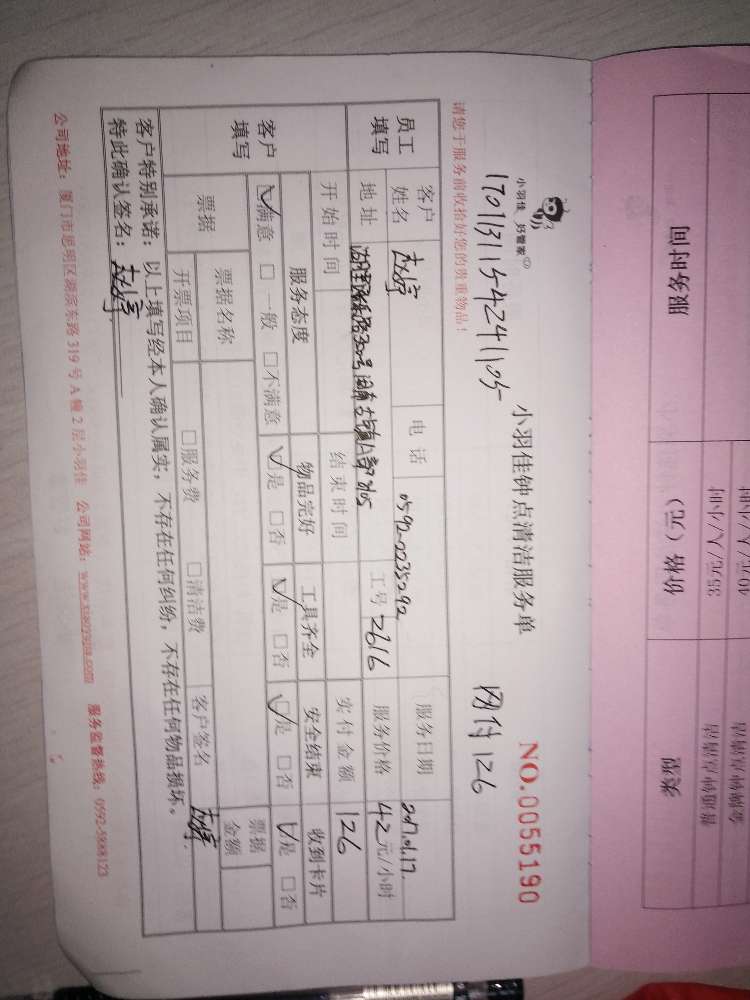 服务时间
价格（元）
类型
35元/人/小时
普通钟点清洁
40元/人/小时
金牌钟点清洁
小羽佳 好管家
小羽佳钟点清洁服务单
NO.0055190
1701131154241105
网付 126
请您于服务前收拾好您的贵重物品！
员工填写
客户姓名
赵婷
电话
0592-2235292
服务日期
2017.01.17
地址
工号
2616
服务价格
42元/小时
开始时间
结束时间
实付金额
126
客户填写
服务态度
物品完好
工具齐全
安全结束
收到卡片
☑满意 □一般 □不满意
☑是 □否
☑是 □否
☑是 □否
☑是 □否
票据
票据名称
票据金额
开票项目
□服务费 □清洁费
客户签名
赵婷
客户特别承诺：以上填写经本人确认属实，不存在任何纠纷，不存在任何物品损坏。
特此确认签名：赵婷
公司地址：厦门市思明区湖滨东路319号A幢2层小羽佳 公司网站：www.xiaoyujia.com 服务监督热线：0592-5988123